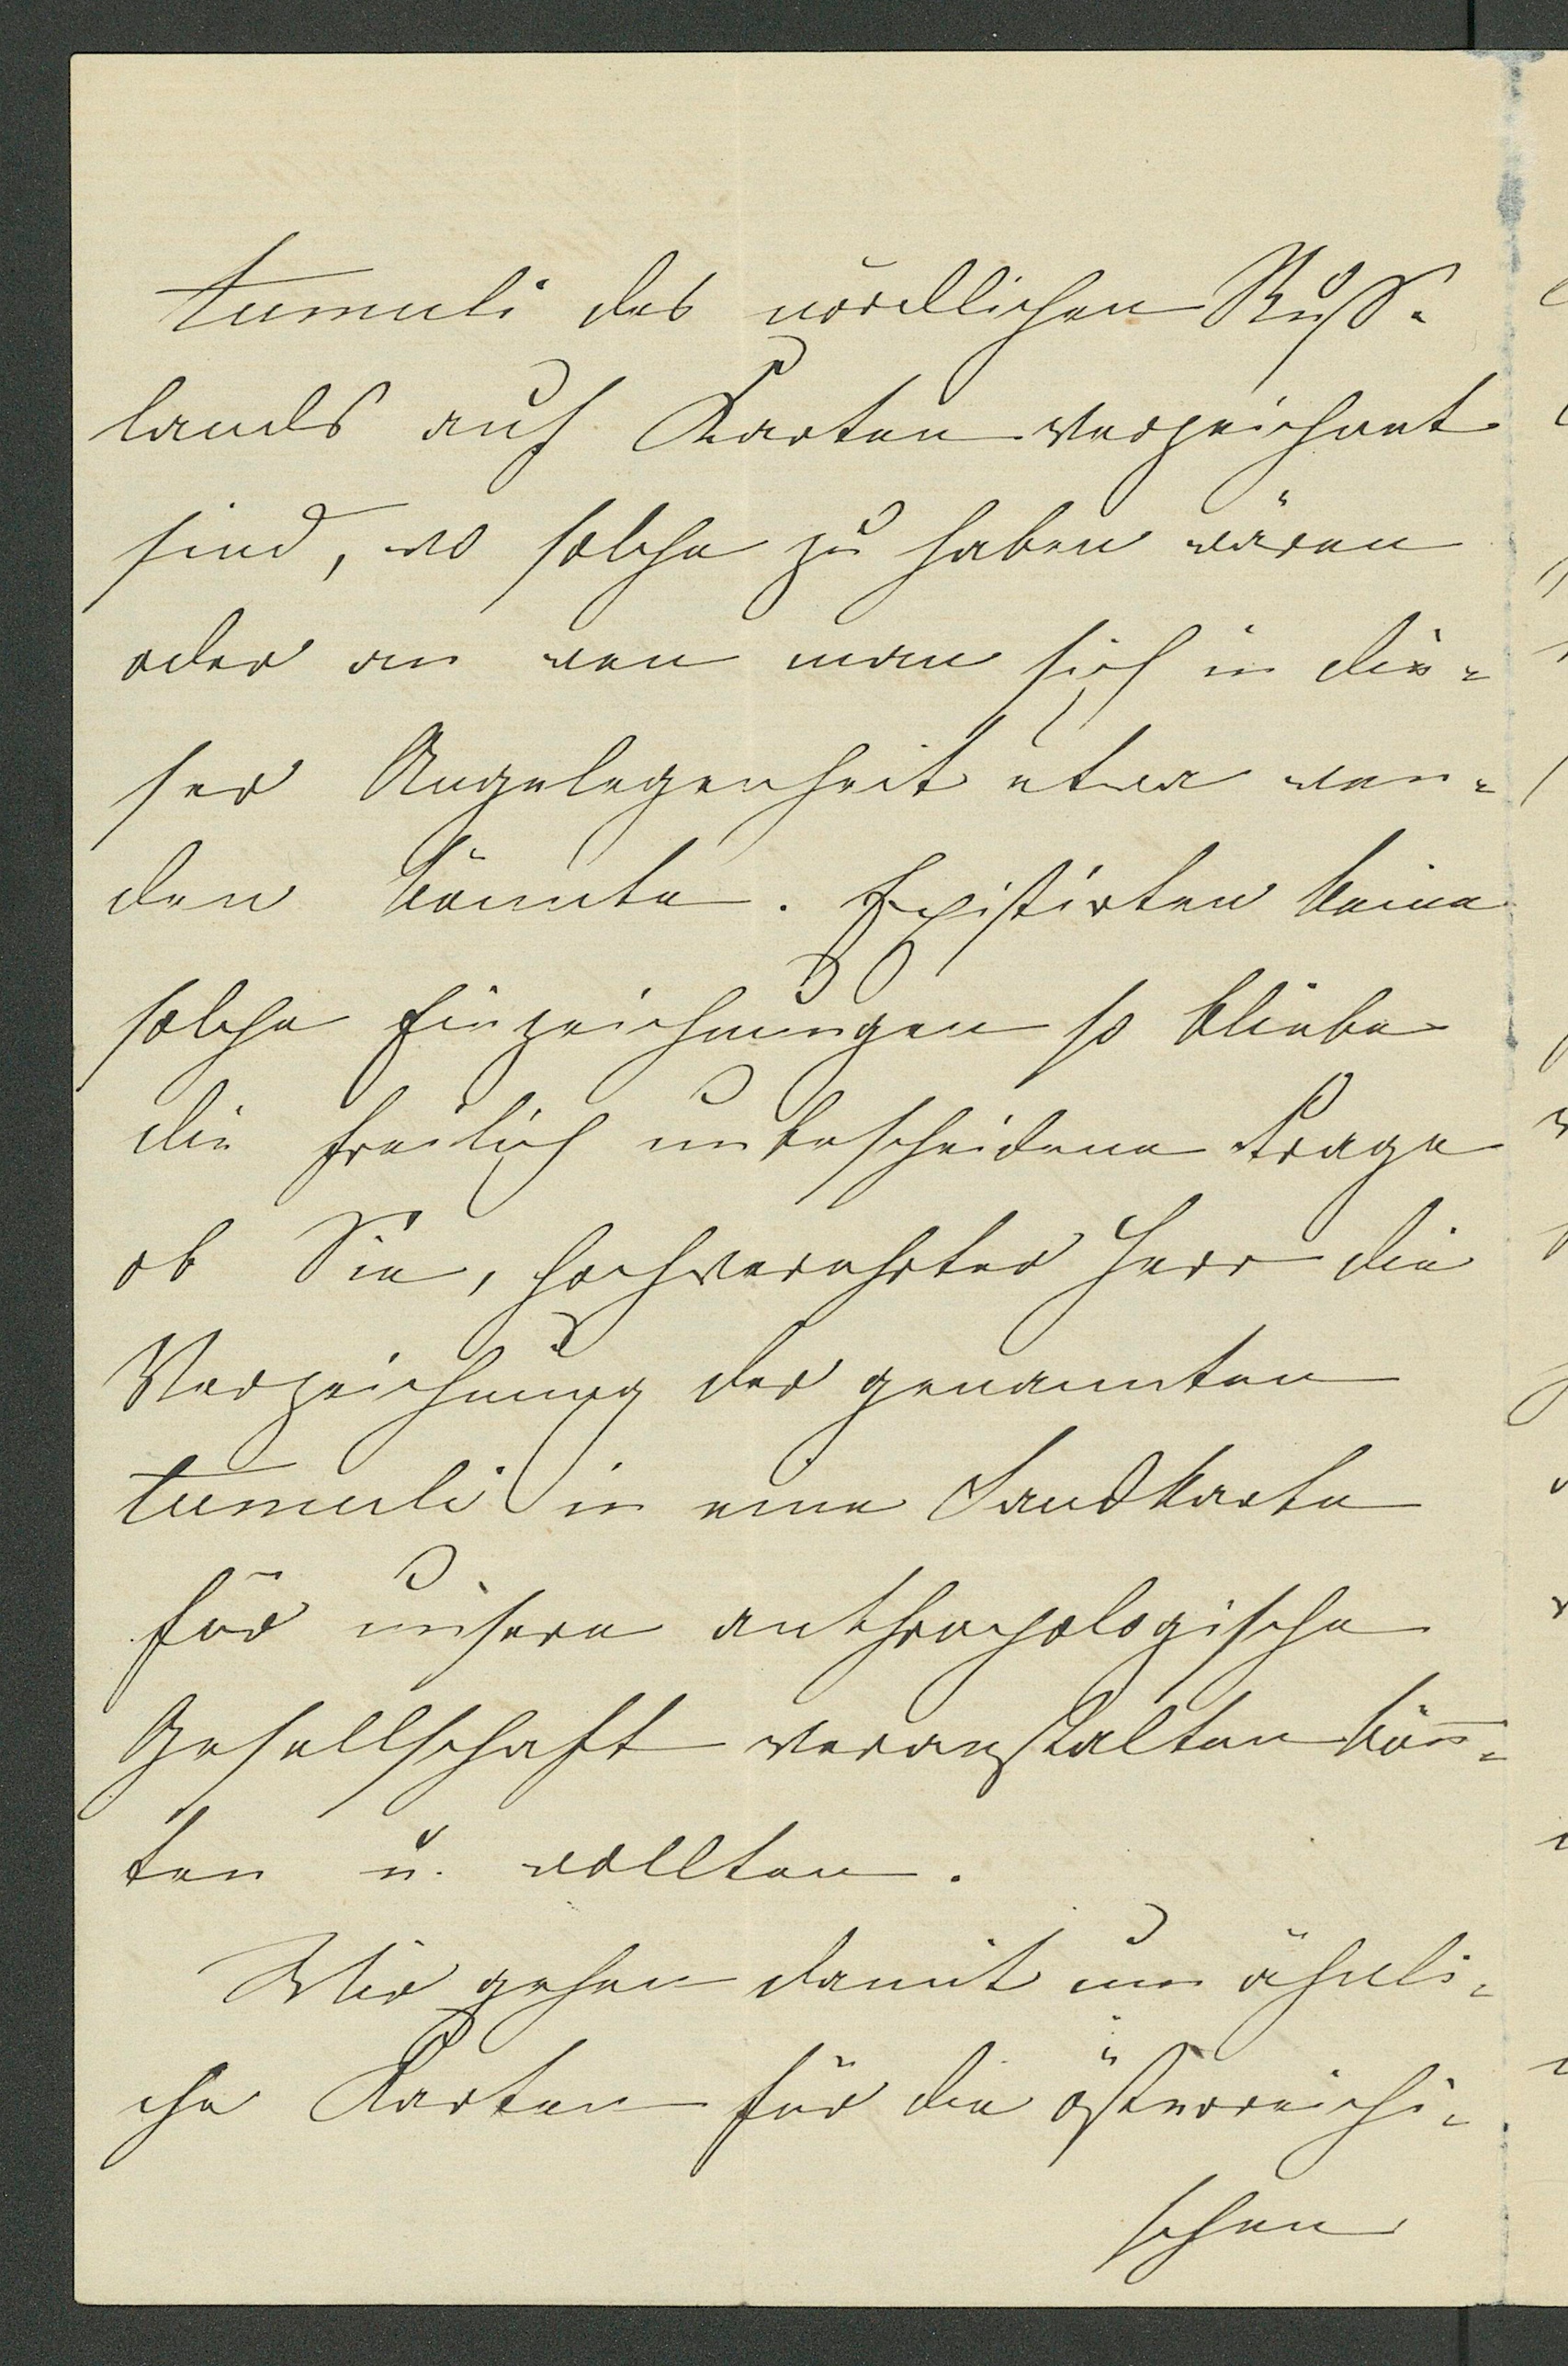 tumuli des nördlichen Ruß-
lands auf Karten verzeichnet
sind, wo solche zu haben wären
oder an wen man sich in die-
ser Angelegenheit etwa wen-
den könnte. Existirten keine
solche Einzeichnungen so bliebe
die freilich unbescheidene Frage
ob Sie, hochverehrter Herr die
Verzeichnung der genannten
tumuli in eine Landkarte
für unsere anthropologische
Gesellschaft veranstalten kön̄-
ten u. wollten.
Wir gehen damit um ähnli-
che Karten für die österreichi-
schen